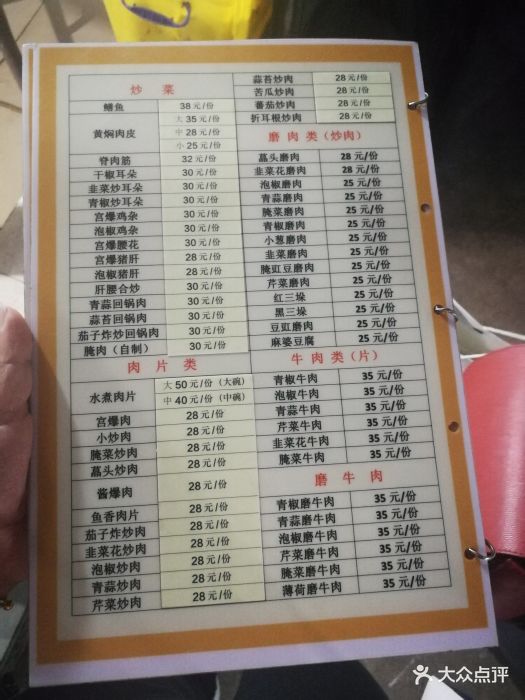 炒 菜
鳝鱼 38元/份
黄焖肉皮 大35元/份
中28元/份
小25元/份
脊肉筋 32元/份
干椒耳朵 30元/份
韭菜炒耳朵 30元/份
青椒炒耳朵 30元/份
宫爆鸡杂 30元/份
泡椒鸡杂 30元/份
宫爆腰花 30元/份
宫爆猪肝 28元/份
泡椒猪肝 28元/份
肝腰合炒 30元/份
青蒜回锅肉 30元/份
蒜苔回锅肉 30元/份
茄子炸炒回锅肉 30元/份
腌肉（自制） 30元/份
肉 片 类
水煮肉片 大50元/份（大碗）
中40元/份（中碗）
宫爆肉 28元/份
小炒肉 28元/份
腌菜炒肉 28元/份
藠头炒肉 28元/份
酱爆肉 28元/份
鱼香肉片 28元/份
茄子炸炒肉 28元/份
韭菜花炒肉 28元/份
泡椒炒肉 28元/份
青蒜炒肉 28元/份
芹菜炒肉 28元/份
蒜苔炒肉 28元/份
苦瓜炒肉 28元/份
蕃茄炒肉 28元/份
折耳根炒肉 28元/份
磨肉类（炒肉）
藠头磨肉 28元/份
韭菜花磨肉 28元/份
泡椒磨肉 25元/份
青蒜磨肉 25元/份
腌菜磨肉 25元/份
青椒磨肉 25元/份
小葱磨肉 25元/份
韭菜磨肉 25元/份
腌豇豆磨肉 25元/份
芹菜磨肉 25元/份
红三垛 25元/份
黑三垛 25元/份
豆豇磨肉 25元/份
麻婆豆腐 25元/份
牛肉类（片）
青椒牛肉 35元/份
泡椒牛肉 35元/份
青蒜牛肉 35元/份
芹菜牛肉 35元/份
韭菜花牛肉 35元/份
腌菜牛肉 35元/份
磨 牛 肉
青椒磨牛肉 35元/份
青蒜磨牛肉 35元/份
泡椒磨牛肉 35元/份
芹菜磨牛肉 35元/份
腌菜磨牛肉 35元/份
薄荷磨牛肉 35元/份
大众点评